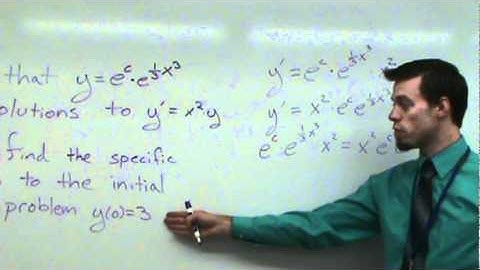 that y=e^c·e^{⅓x³}
olutions to y'=x²·y
find the specific
to the initial
problem y(0)=3
y'=e^c·e^{⅓x³}·x²
y'=x²·e^c e^{⅓x³}
e^c·e^{⅓x³}x²=x²e^c